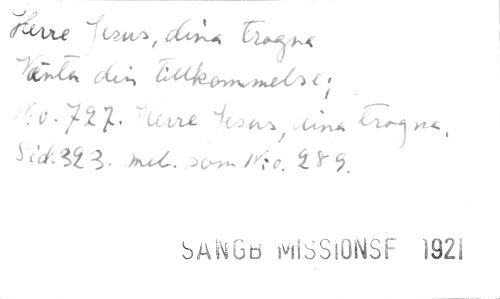 Herre Jesus, dina trogna
Vänta din tillkommelse;
N:o. 727. Herre Jesus, dina trogna.
Sid. 323. mel. som N:o. 289.
SANGB MISSIONSF 1921